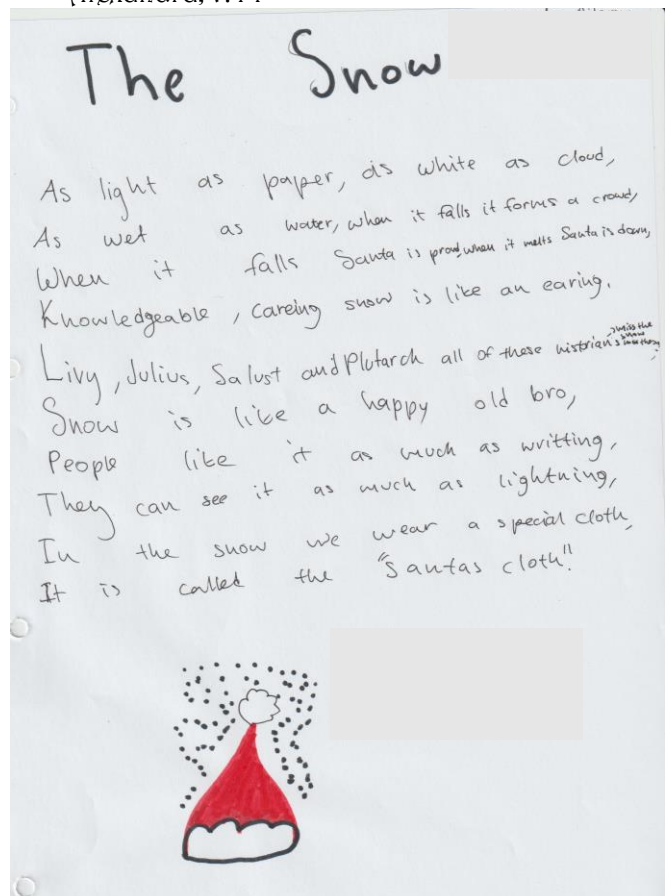 The Snow
As light as paper, as white as cloud,
As wet as water, when it falls it forms a crowd,
When it falls Santa is proud, when it melts Santa is down,
Knowledgeable, careing snow is like an earing.
Livy, Julius, Salust and Plutarch all of these histrian's miss the snow
Snow is like a happy old bro,
People like it as much as writting,
They can see it as much as lightning,
In the snow we wear a special cloth,
It is called the "santas cloth".